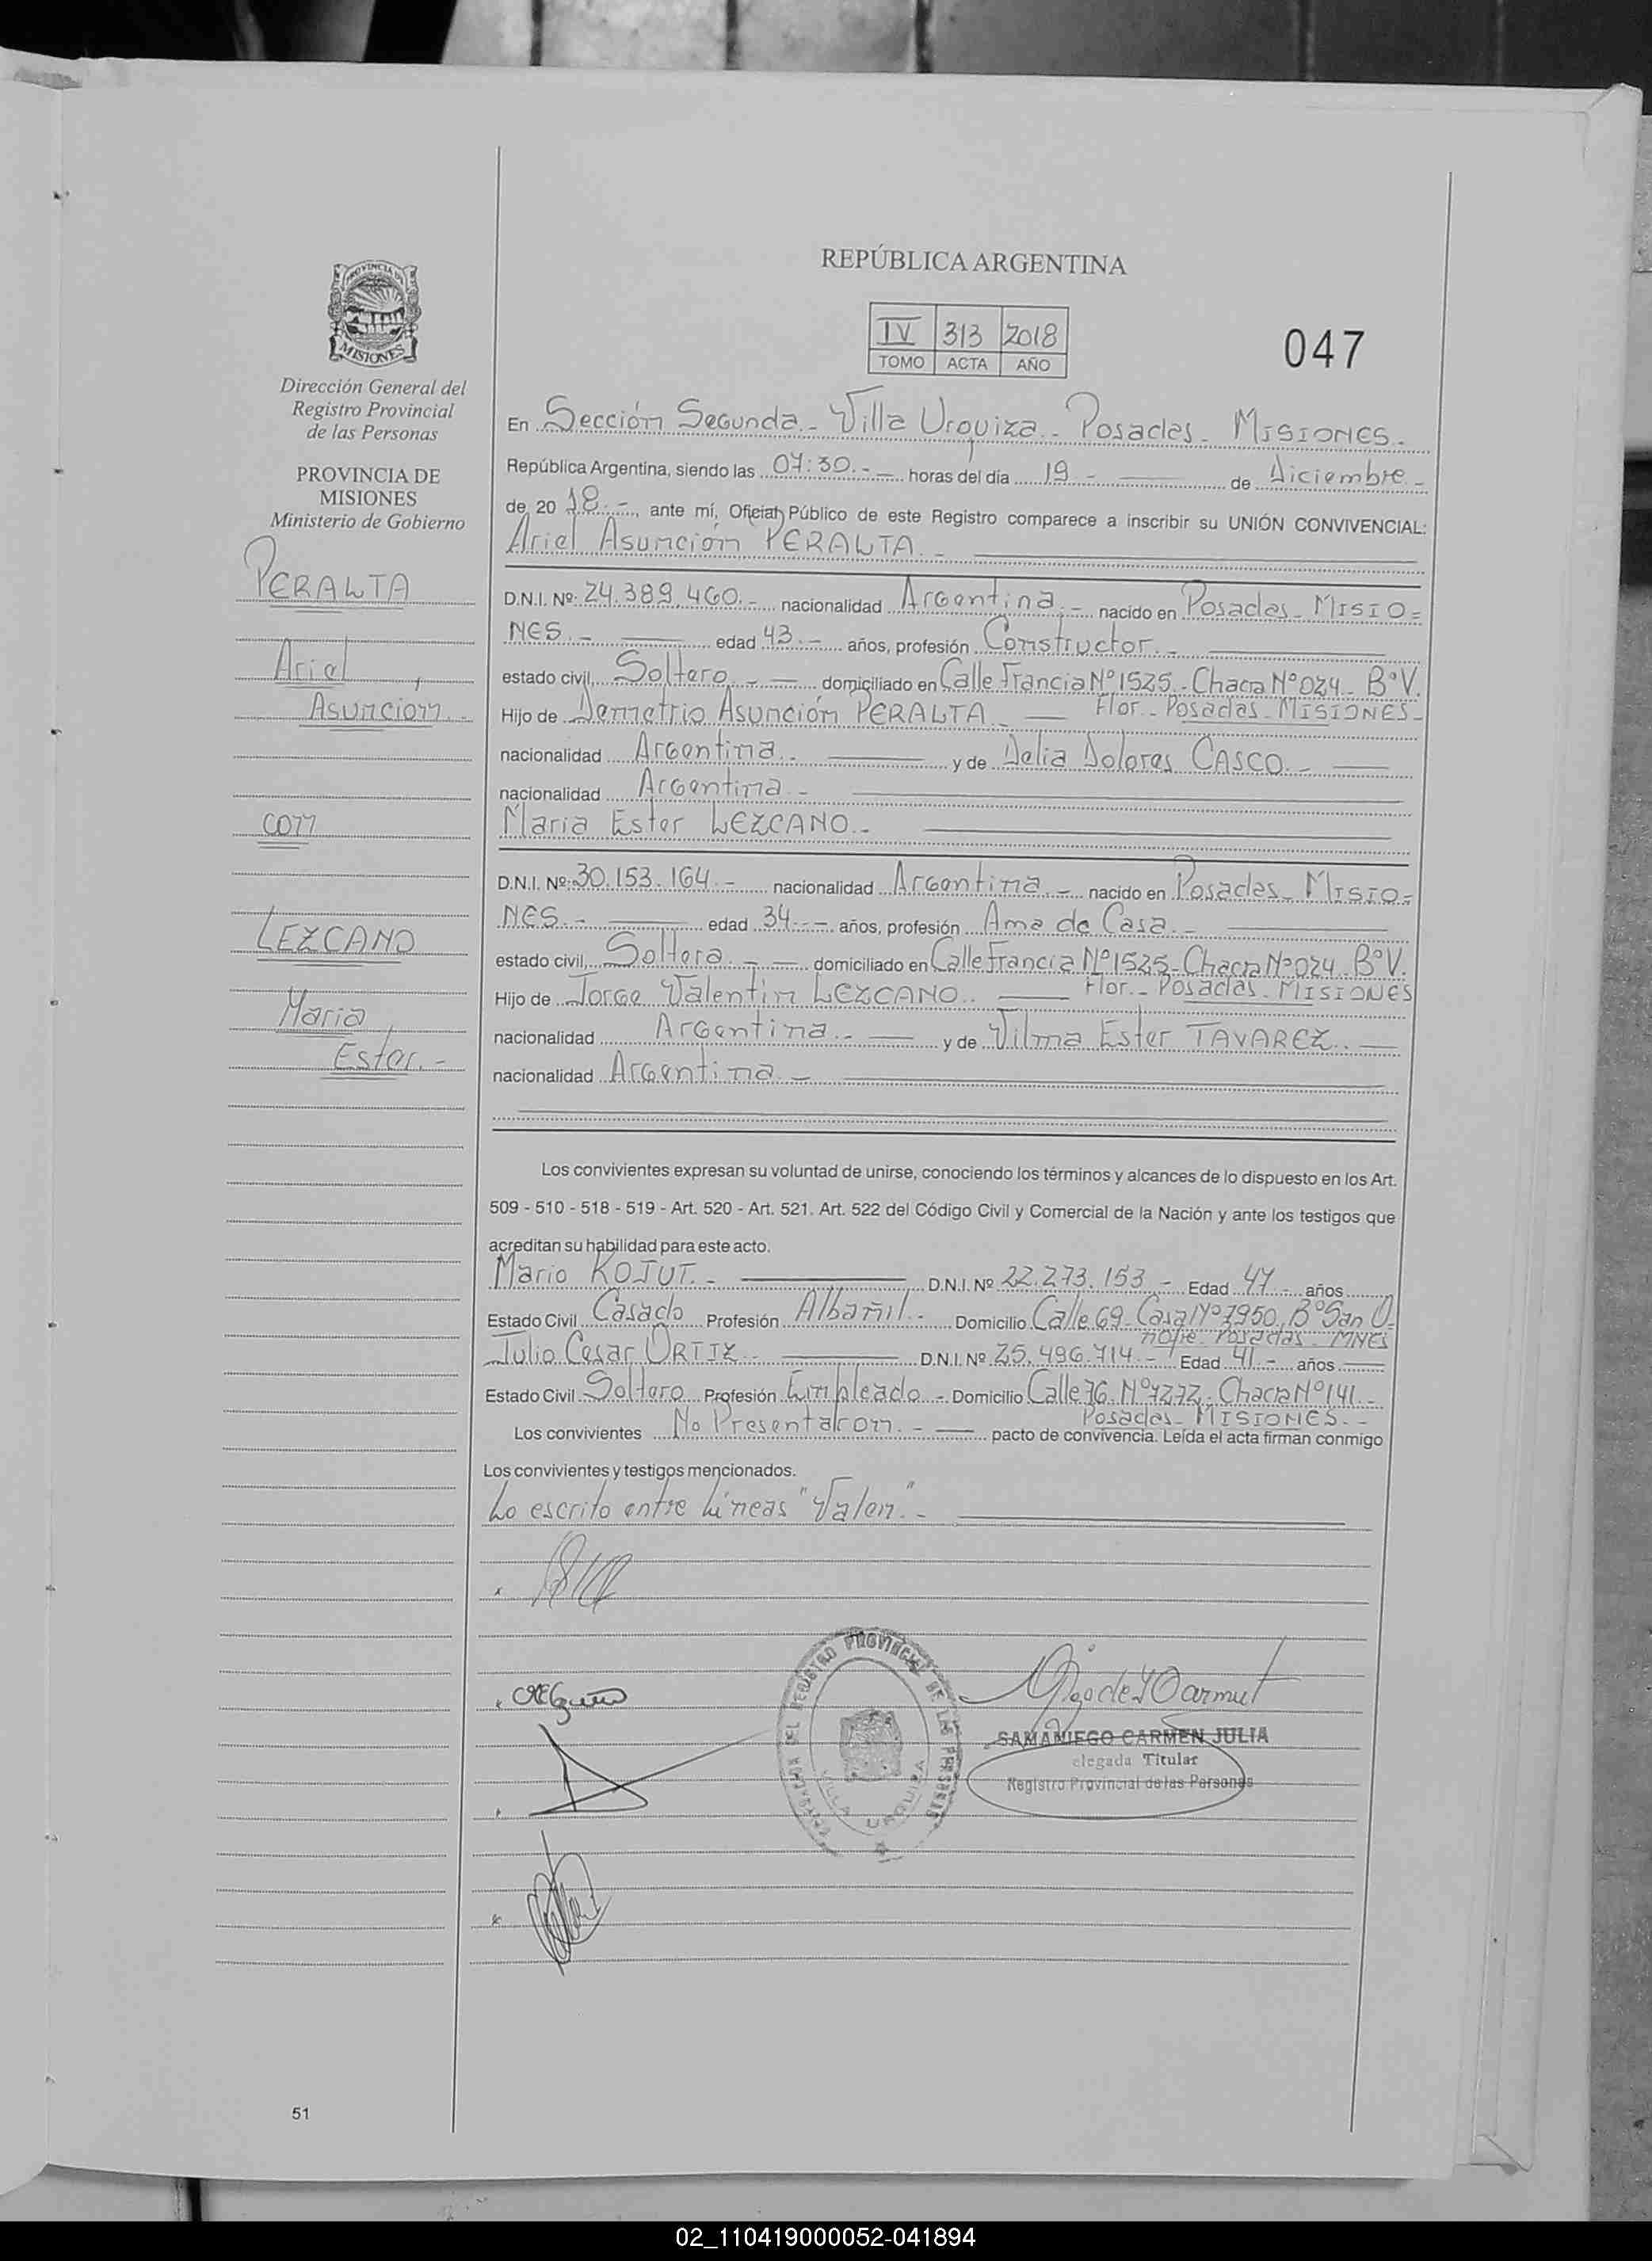 REPÚBLICA ARGENTINA
PROVINCIA DE
MISIONES
IV 313 2018
TOMO ACTA AÑO
047
Dirección General del
Registro Provincial
de las Personas
PROVINCIA DE
MISIONES
Ministerio de Gobierno
PERALTA
Ariel,
Asunción.-
con
LEZCANO
Maria,
Ester.-
En Sección Segunda.- Villa Urquiza.- Posadas- MISIONES.-
República Argentina, siendo las 07:30.- horas del día 19.- de Diciembre.-
de 20 18.-, ante mí, Oficial Público de este Registro comparece a inscribir su UNIÓN CONVIVENCIAL:
Ariel Asunción PERALTA.-
D.N.I. Nº: 24.389.460.- nacionalidad Argentina.- nacido en Posadas- MISIO=
NES.- edad 43.- años, profesión Constructor.-
estado civil, Soltero.- domiciliado en Calle Francia Nº1525.- Chacra Nº024- BºV.
Flor.- Posadas- MISIONES-
Hijo de Demetrio Asunción PERALTA.-
nacionalidad Argentina.- y de Delia Dolores CASCO.-
nacionalidad Argentina.-
Maria Ester LEZCANO.-
D.N.I. Nº: 30.153.164.- nacionalidad Argentina.- nacido en Posadas- MISIO=
NES.- edad 34.- años, profesión Ama de Casa.-
estado civil, Soltera.- domiciliado en Calle Francia Nº1525- Chacra Nº024 BºV.
Flor.- Posadas- MISIONES
Hijo de Jorge Valentin LEZCANO.-
nacionalidad Argentina.- y de Vilma Ester TAVAREZ.-
nacionalidad Argentina.-
Los convivientes expresan su voluntad de unirse, conociendo los términos y alcances de lo dispuesto en los Art.
509 - 510 - 518 - 519 - Art. 520 - Art. 521. Art. 522 del Código Civil y Comercial de la Nación y ante los testigos que
acreditan su habilidad para este acto.
Mario KOJUT.- D.N.I. Nº 22.273.153.- Edad 47.- años
Estado Civil Casado Profesión Albañil.- Domicilio Calle 69- Casa Nº7950, BºSan O=
nofre- Posadas- MNES
Julio Cesar ORTIZ.- D.N.I. Nº 25.496.714.- Edad 41.- años
Estado Civil Soltero Profesión Empleado.- Domicilio Calle 76 Nº7272- Chacra Nº141.-
Posadas- MISIONES.-
Los convivientes No Presentaron.- pacto de convivencia. Leída el acta firman conmigo
Los convivientes y testigos mencionados.
Lo escrito entre líneas "Valen".-
REGISTRO PROVINCIAL DE LAS PERSONAS
VILLA URQUIZA
SAMANIEGO CARMEN JULIA
elegada Titular
Registro Provincial de las Personas
51
02_110419000052-041894